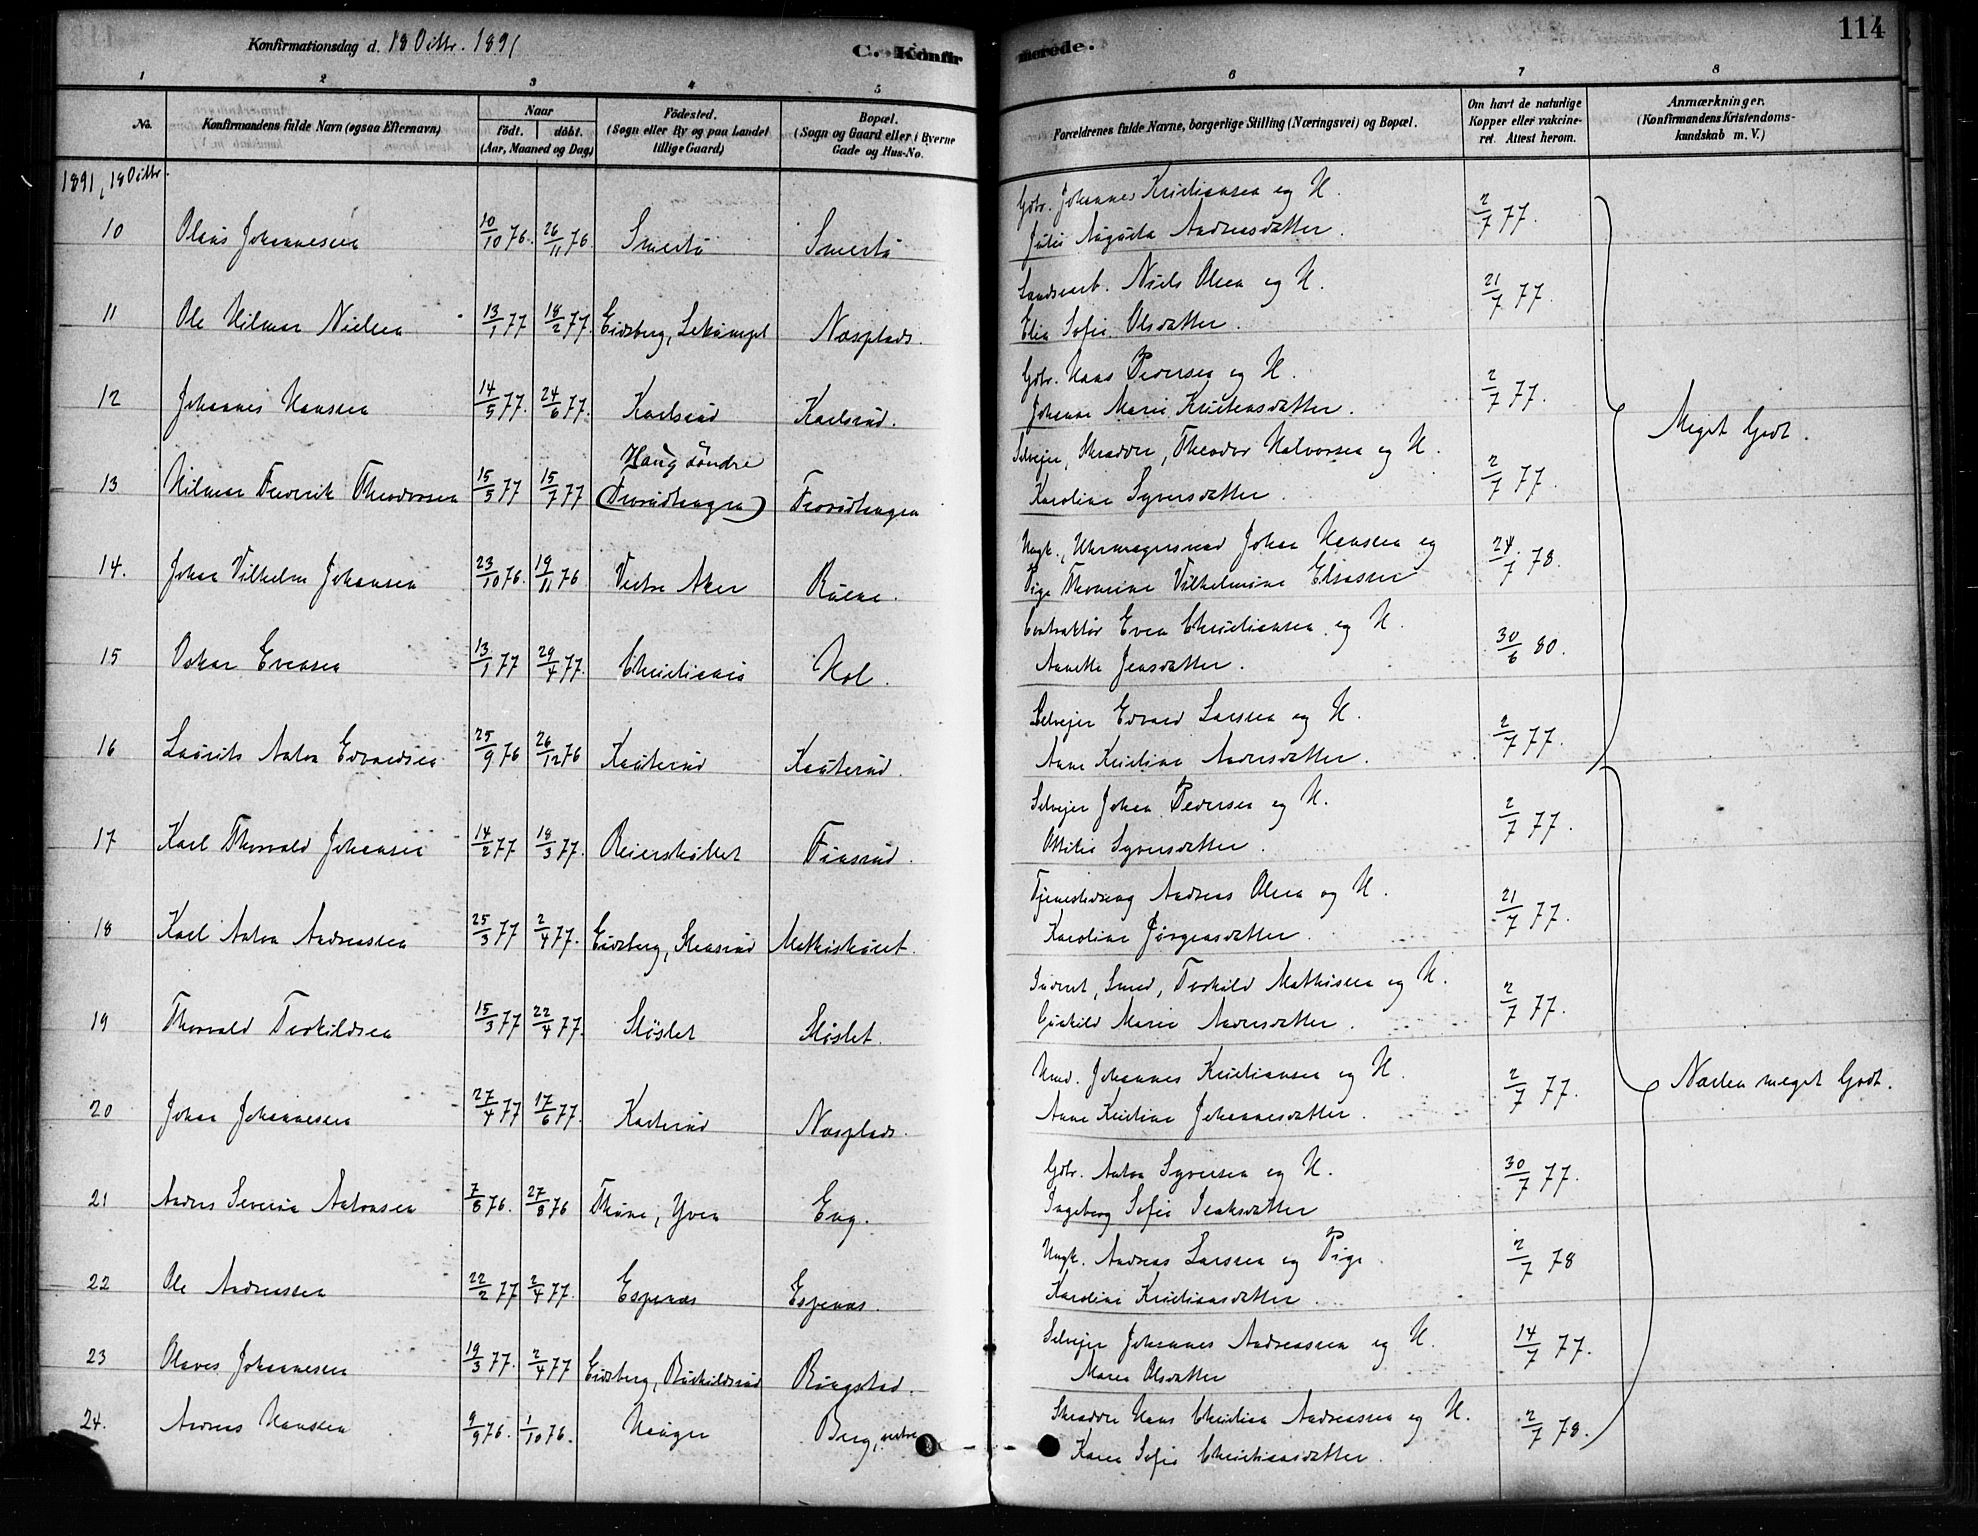 114
Konfirmationsdag d. 18 Oktbr. 1891
C. Konfirmerede.
1 2 3 4 5 6 7 8
No.
Konfirmandens fulde Navn (ogsaa Efternavn)
Naar
födt. döbt.
(Aar, Maaned og Dag)
Födested.
(Sogn eller By og paa Landet
tillige Gaard)
Bopæl.
(Sogn og Gaard eller i Byerne
Gade og Hus-No.
Forældrenes fulde Navne, borgerlige Stilling (Næringsvei) og Bopæl.
Om havt de naturlige
Kopper eller vakcine-
ret. Attest herom.
Anmærkninger.
(Konfirmandens Kristendoms-
kundskab m. V.)
1891, 18 Oktbr.
10 Olaus Johannesen 10/10 76. 26/11 76. Smertu Smertu
Gdbr. Johannes Kristiansen og H.
Julie Augusta Andreasdatter. 2/7 77.
11 Ole Hilmar Nielsen 13/1 77 18/2 77. Eidsberg, Næsplads.
Niels Olsen og H.
Elin Sofie Olsdatter. 21/7 77.
12 Johannes Hansen 14/5 77. 24/6 77. Karlsrud Karlsrud.
Gdbr. Hans Pedersen og H.
Johanne Marie Kristensdatter. 2/7 77.
Meget Godt.
13 Hilmar Frederik Theodorsen 15/5 77 15/7 77 Haug söndre
Selveier, Skrædder, Theodor Halvorsen og H.
Karoline Syversdatter. 2/7 77.
14. Johan Vilhelm Johansen 23/10 76. 19/11 76 Vestre Aker
Ungk., Uhrmagersvend Johan Hansen og
Pige Thomine Vilhelmine Eliassen 24/7 78.
15 Oskar Evensen 13/1 77 29/4 77. Christiania Hol.
Even Christiansen og H.
Annette Jensdatter. 30/6 80.
16 Laurits Anton Edvardsen 25/9 76 26/12 76 Knuterud Knuterud.
Selveier Edvard Larsen og H.
Anne Kristine Andersdatter. 2/7 77.
17 Karl Thorvald Johansen 14/2 77 18/3 77. Finsrud.
Selveier Johan Pedersen og H.
Ottilie Syversdatter. 2/7 77.
18 Karl Anton Andreassen 25/3 77 2/4 77. Eidsberg,
Tjenestedreng Andreas Olsen og H.
Karoline Jörgensdatter. 21/7 77.
19 Thorvald Terkildsen 15/3 77 22/4 77. Slöslet Slöslet.
Inderst, Smed, Terkild Mathisen og H.
Marie Andersdatter. 2/7 77.
20 Johan Johannesen 27/4 77 17/6 77. Næsplads.
Johannes Kristiansen og H.
Anne Kristine Johannesdatter. 2/7 77.
Næsten meget Godt.
21 Anders Severin Antonsen 7/8 76. 27/8 76 Eng.
Gdbr. Anton Syversen og H.
Ingeborg Sofie Isaksdatter 30/7 77.
22 Ole Andreassen 22/2 77 2/4 77. Espenæs Espenæs.
Ungk. Andreas Larsen og Pige
Karoline Kristiansdatter. 2/7 78
23 Olaves Johannesen 19/3 77. 2/4 77 Eidsberg, Ringstad.
Selveier Johannes Andreassen og H.
Maren Olsdatter 14/7 77.
24. Andreas Hansen 9/9 76. 1/10 76. Hauger Berg, nedre
Skrædder Hans Christian Andreassen og H.
Karen Sofie Christiansdatter. 2/7 78.